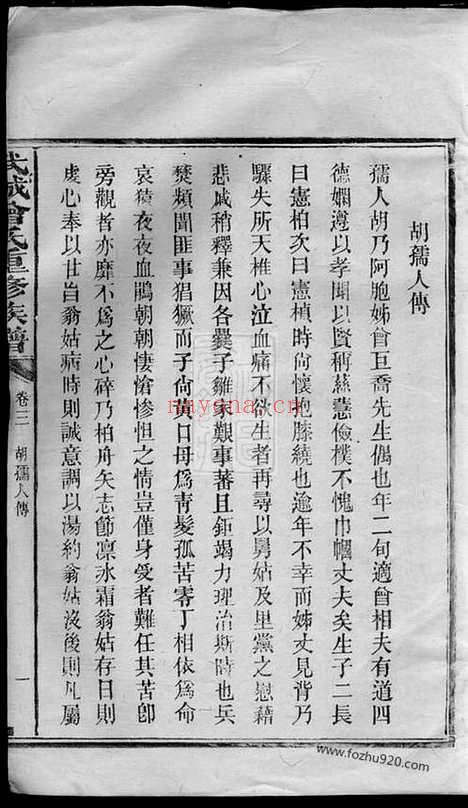 胡孺人傳
孺人胡乃阿胞姊曾巨喬先生偶也年二旬適曾相夫有道四
德嫻遵以孝聞以賢稱慈惠儉樸不愧巾幗丈夫矣生子二長
曰憲柏次曰憲楨時尚懷抱膝繞也逾年不幸而姊丈見背乃
驟失所天椎心泣血痛不欲生者再尋以舅姑及里黨之慰藉
悲戚稍釋兼因各爨子雛家艱事蕃且鉅竭力理治斯時也兵
燹頻聞匪事猖獗而子尚黃口母爲靑髮孤苦零丁相依爲命
哀猿夜夜血鵑朝朝悽愴慘怛之情豈僅身受者難任其苦卽
旁觀者亦靡不爲之心碎乃柏舟矢志節凛氷霜翁姑存日則
虔心奉以甘旨翁姑病時則誠意調以湯葯翁姑沒後則凡屬
武城曾氏重修族譜
卷三
胡孺人傳
一
nnyona.cn
www.fozhu920.com